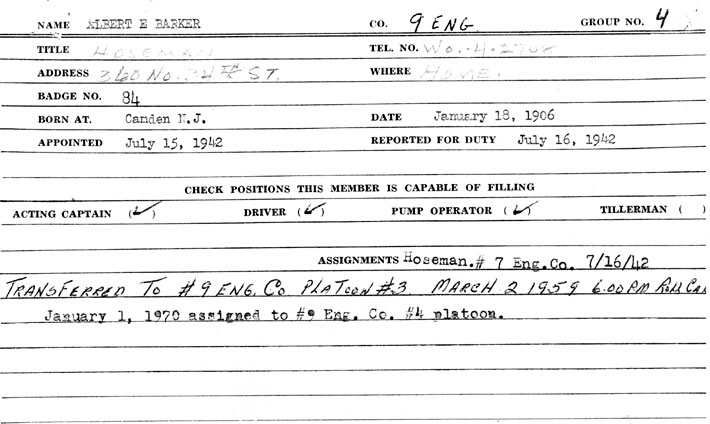 NAME ALBERT E BARKER CO. 9 ENG. GROUP NO. 4
TITLE HOSEMAN TEL. NO. WO.-4-2708
ADDRESS 360 NO. 34TH ST. WHERE HOME.
BADGE NO. 84
BORN AT. Camden N.J. DATE January 18, 1906
APPOINTED July 15, 1942 REPORTED FOR DUTY July 16, 1942
CHECK POSITIONS THIS MEMBER IS CAPABLE OF FILLING
ACTING CAPTAIN (✓) DRIVER (✓) PUMP OPERATOR (✓) TILLERMAN ( )
ASSIGNMENTS Hoseman.# 7 Eng.Co. 7/16/42
TRANSFERRED TO #9 ENG. CO PLATOON #3 MARCH 2 1959 6.00 PM ROLL CALL
January 1, 1970 assigned to #9 Eng. Co. #4 platoon.